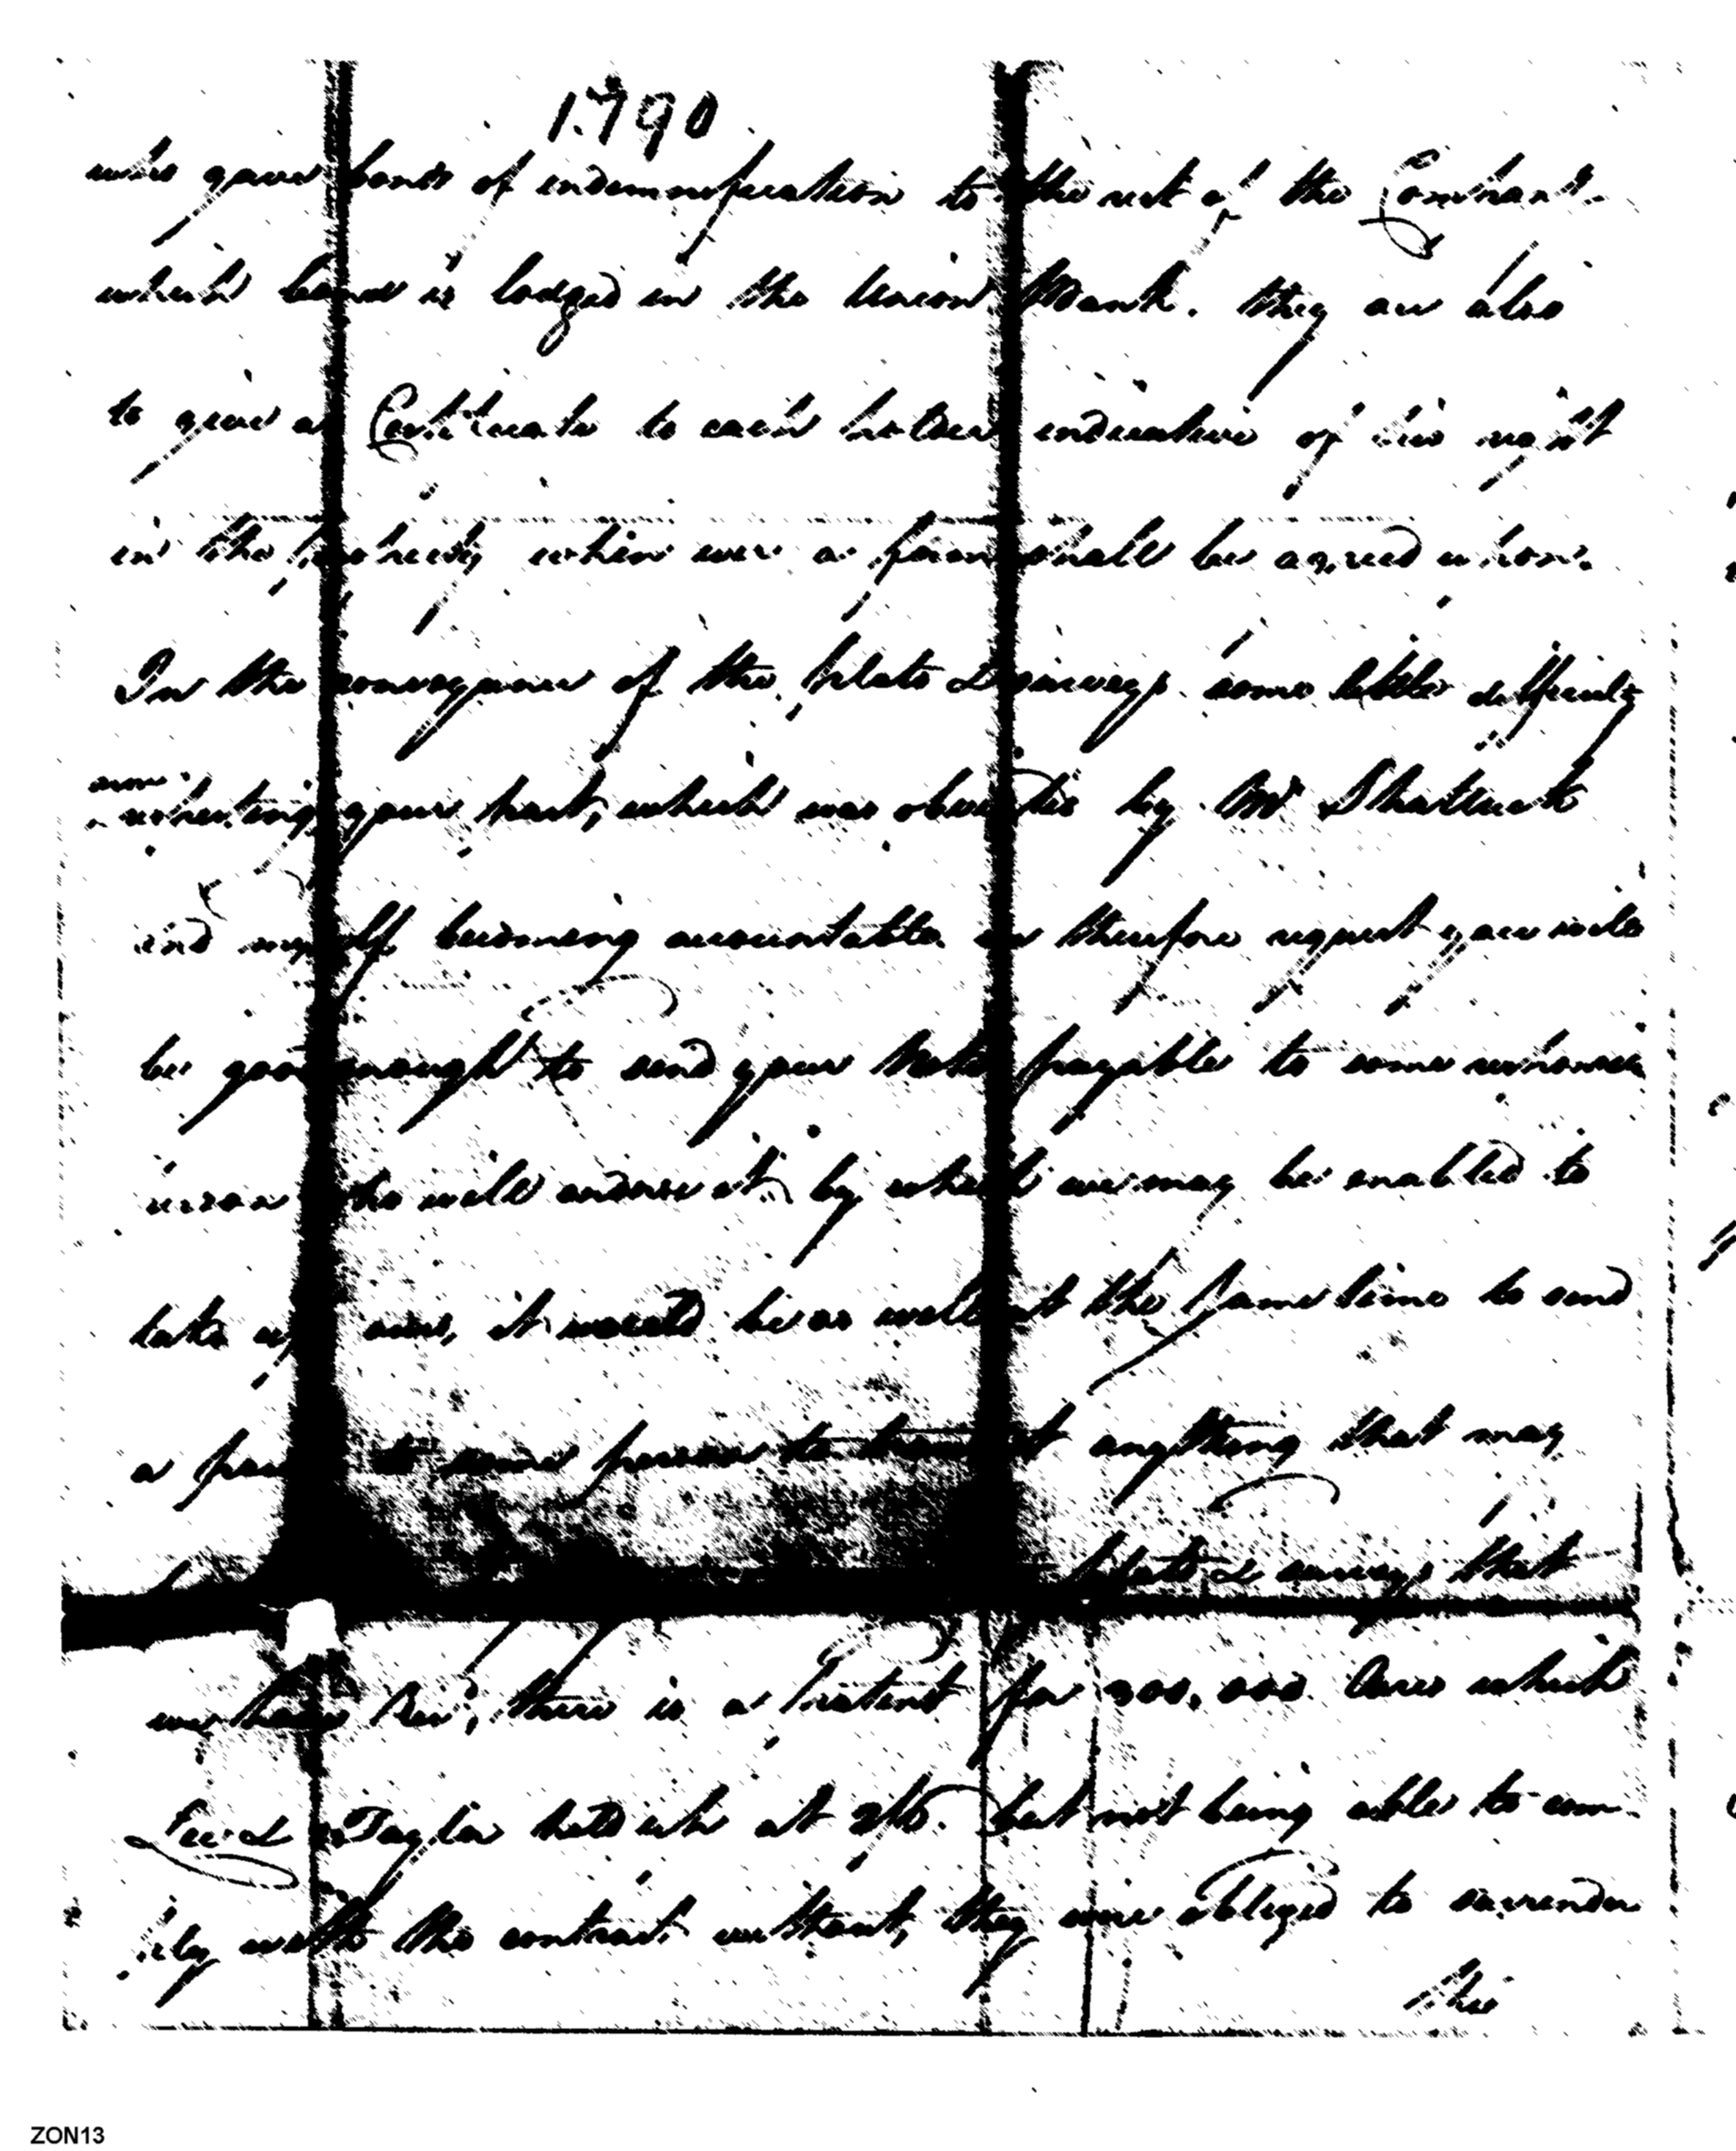 1790
who gave bonds of indemnification to the rest of the Company
which bond is lodged in the Union Bank. they are also
to give a Certificate to each holder indicative of his right
in the property when ever a form shall be agreed upon.
In the conveyance of the plats & surveys some little difficulty
your part, which was obviated by Mr Shattuck
and myself becoming accountable we therefore request you will
be good enough to send your note payable to some
person who will endorse it by which we may be enabled to
take up ours, it would be as well at the same time to send
a to some person to transact anything that may
plats & surveys that
we have Recd, there is a Patent for 300,000 Acres which
Lee & Taylor held up at 2/6. but not being able to com-
ply with the contract without, they were obliged to surrender
the
ZON13